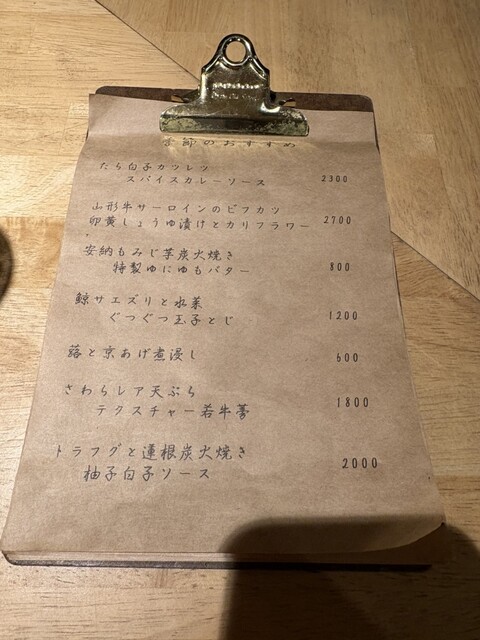 季節のおすすめ
たら白子カツレツ
スパイスカレーソース 2300
山形牛サーロインのビフカツ
卵黄しょうゆ漬けとカリフラワー 2700
安納もみじ芋炭火焼き
特製ゆにゆもバター 800
鯨サエズリと水菜
ぐつぐつ玉子とじ 1200
蕗と京あげ煮浸し 600
さわらレア天ぷら
テクスチャー若牛蒡 1800
トラフグと蓮根炭火焼き
柚子白子ソース 2000